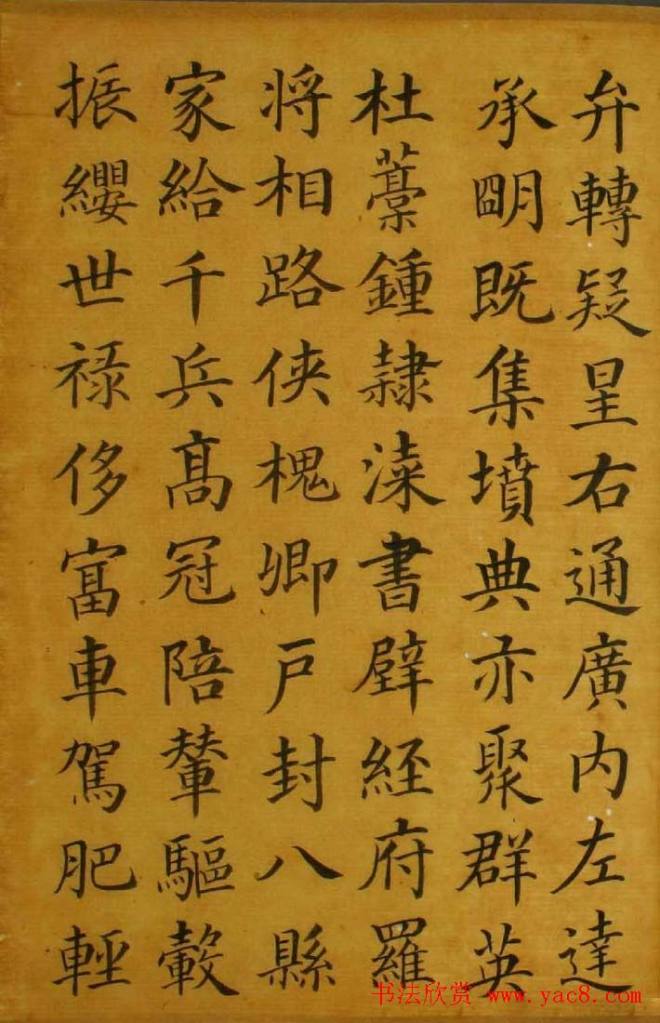 弁轉疑星右通廣内左達
承朙既集墳典亦聚群英
杜藳鍾隷漆書壁経府羅
将相路侠槐卿戸封八縣
家給千兵髙冠陪輦驅轂
振纓世禄侈富車駕肥輕
书法欣赏 www.yac8.com